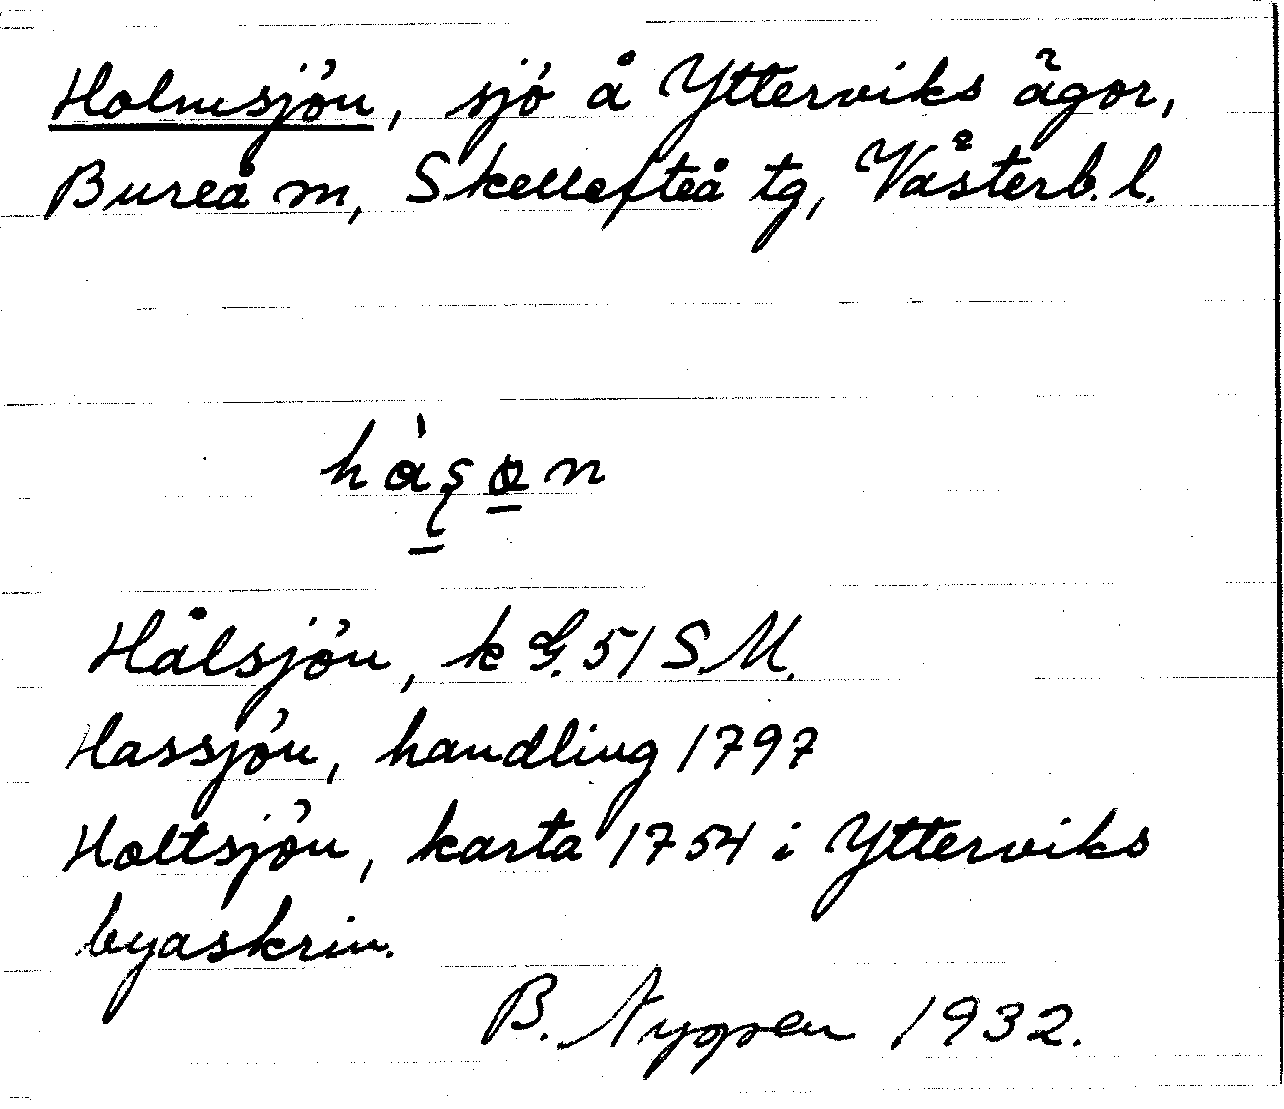 Holmsjön, sjö å Ytterviks ägor,
Bureå m, Skellefteå tg, Västerb. l.
Hålsjön, k G. 51 S.M.
Hassjön, handling 1797
Holtsjön, karta 1754 i Ytterviks
byaskrin.
B. Nygren 1932.